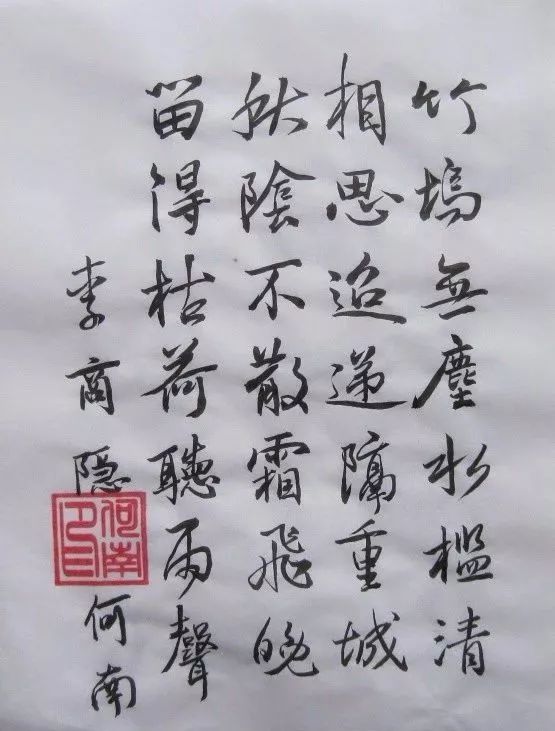 竹塢無塵水檻清
相思迢遞隔重城
秋陰不散霜飛晚
留得枯荷聽雨聲
李商隐 何南
何南之印